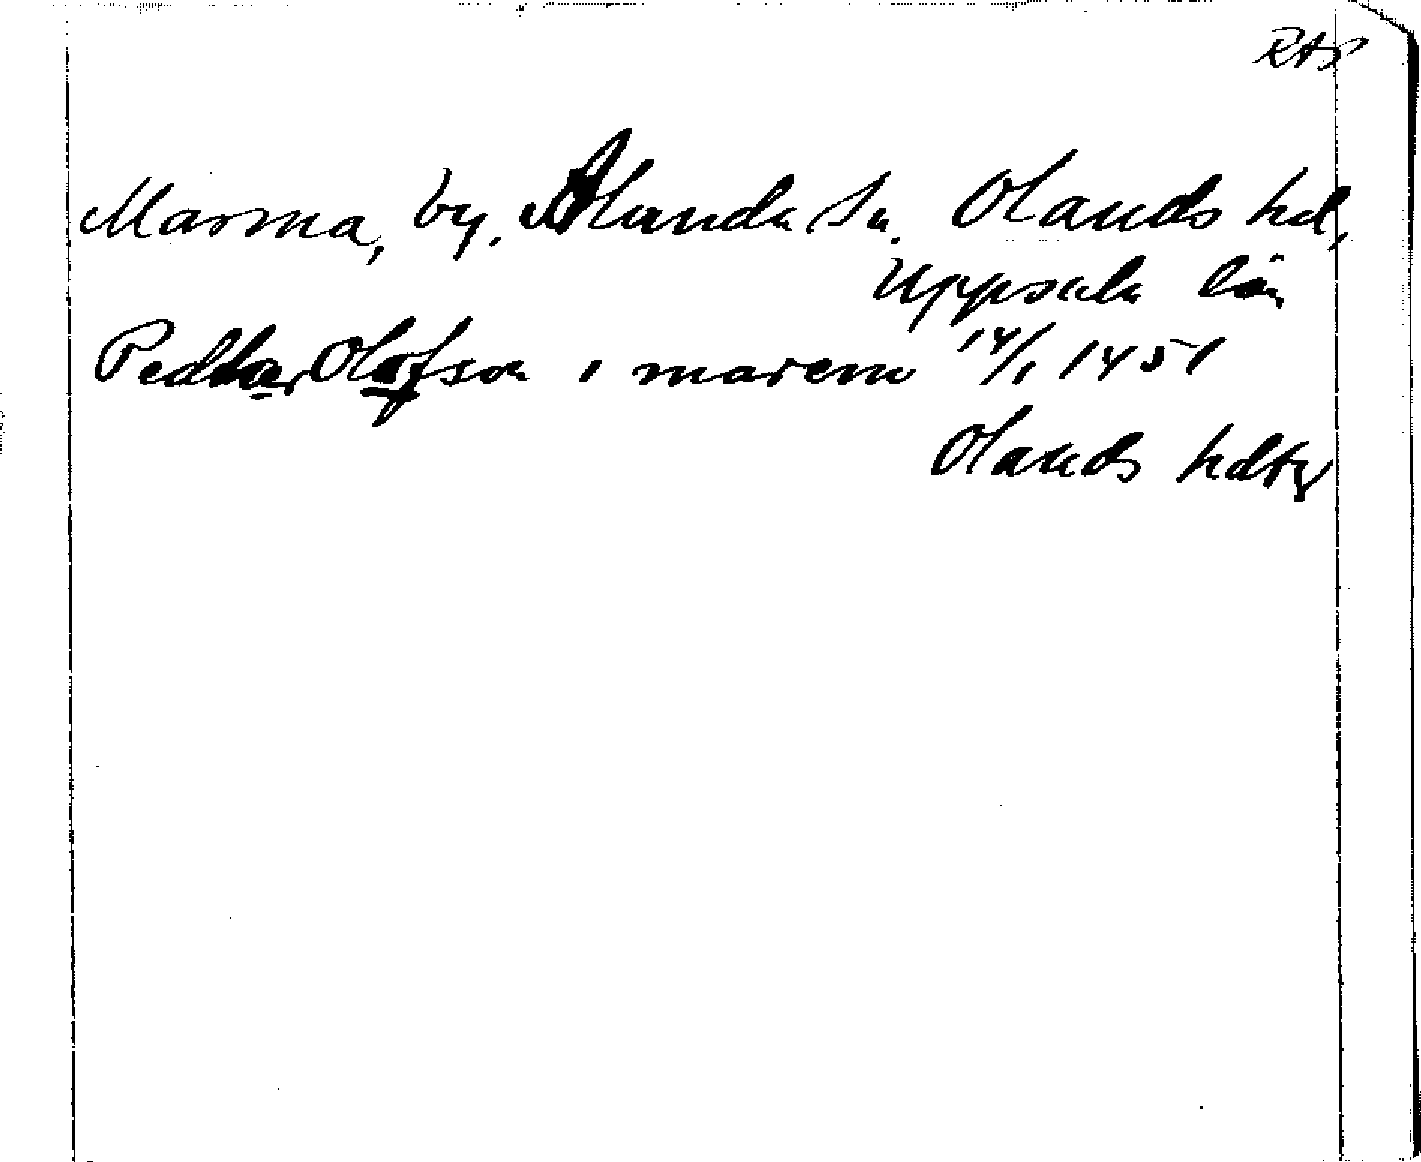 RAP
Marma, by, Alunda sn. Olands hd,
Uppsala län
Pedher Olofson i marem 14/1 1451
Olands hdtg